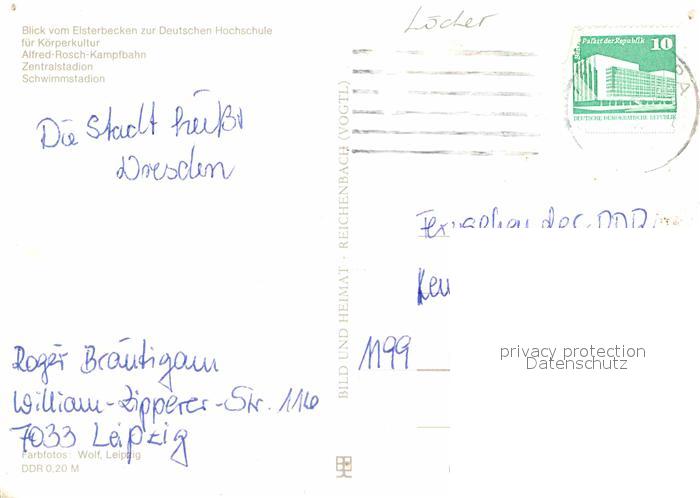 Blick vom Elsterbecken zur Deutschen Hochschule
für Körperkultur
Alfred-Rosch-Kampfbahn
Zentralstadion
Schwimmstadion
Die Stadt heißt
Dresden
Roger Bräutigam
William-Zipperer-Str. 116
7033 Leipzig
Farbfotos: Wolf, Leipzig
DDR 0,20 M
BILD UND HEIMAT · REICHENBACH (VOGTL)
Löcher
Palast der Republik 10
DEUTSCHE DEMOKRATISCHE REPUBLIK
Fernsehen der DDR
1199
privacy protection
Datenschutz